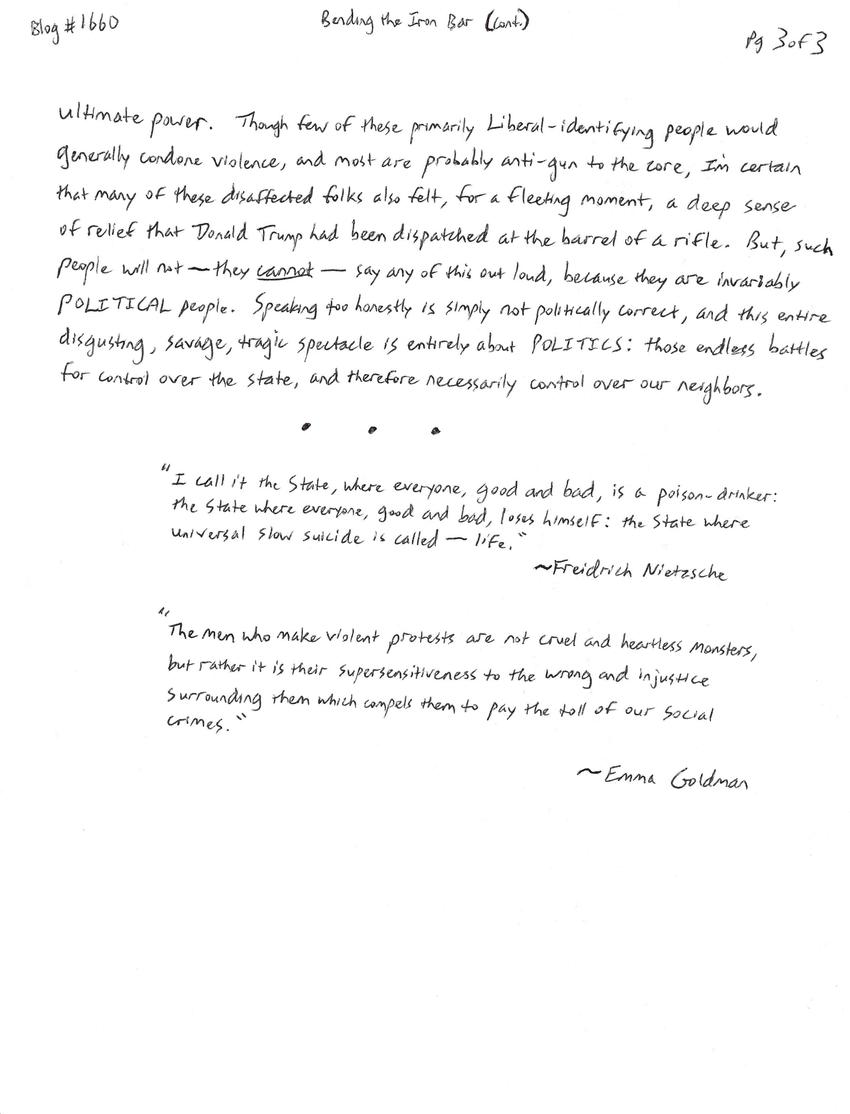 Blog #1660
Bending the Iron Bar (cont.)
Pg 3 of 3
ultimate power. Though few of these primarily Liberal-identifying people would
generally condone violence, and most are probably anti-gun to the core, I'm certain
that many of these disaffected folks also felt, for a fleeting moment, a deep sense
of relief that Donald Trump had been dispatched at the barrel of a rifle. But, such
people will not — they cannot — say any of this out loud, because they are invariably
POLITICAL people. Speaking too honestly is simply not politically correct, and this entire
disgusting, savage, tragic spectacle is entirely about POLITICS: those endless battles
for control over the state, and therefore necessarily control over our neighbors.
• • •
"I call it the State, where everyone, good and bad, is a poison-drinker:
the State where everyone, good and bad, loses himself: the State where
universal slow suicide is called — life."
~Freidrich Nietzsche
"The men who make violent protests are not cruel and heartless monsters,
but rather it is their supersensitiveness to the wrong and injustice
surrounding them which compels them to pay the toll of our social
crimes."
~Emma Goldman